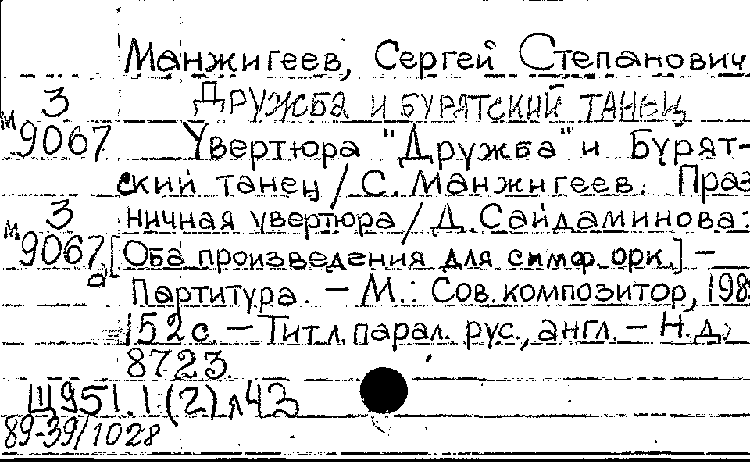 Манжигеев, Сергей Степанович
З Дружба и бурятский танец
м 9067 Увертюра "Дружба" и Бурят-
ский танец / С. Манжигеев. Праз
З ничная увертюра / Д. Сайдаминова:
м 9067 [Оба произведения для симф. орк.] –
а Партитура. – М.: Сов. композитор, 198
152 с. – Тит. л. парал. рус., англ. – Н. д.
8723.
Щ951.1(2)л43
89-39/1028